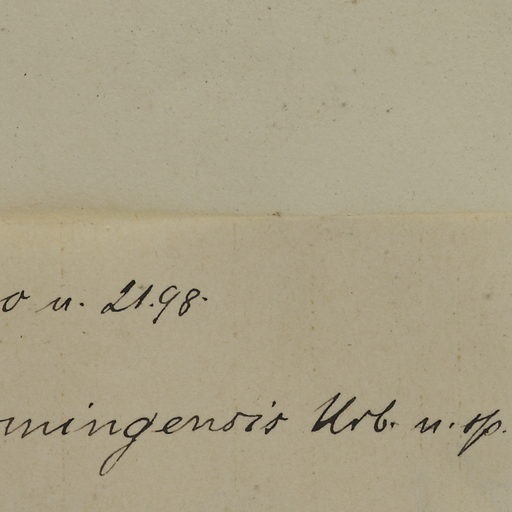 o n. 2198.
mingensis Urb. n. sp.